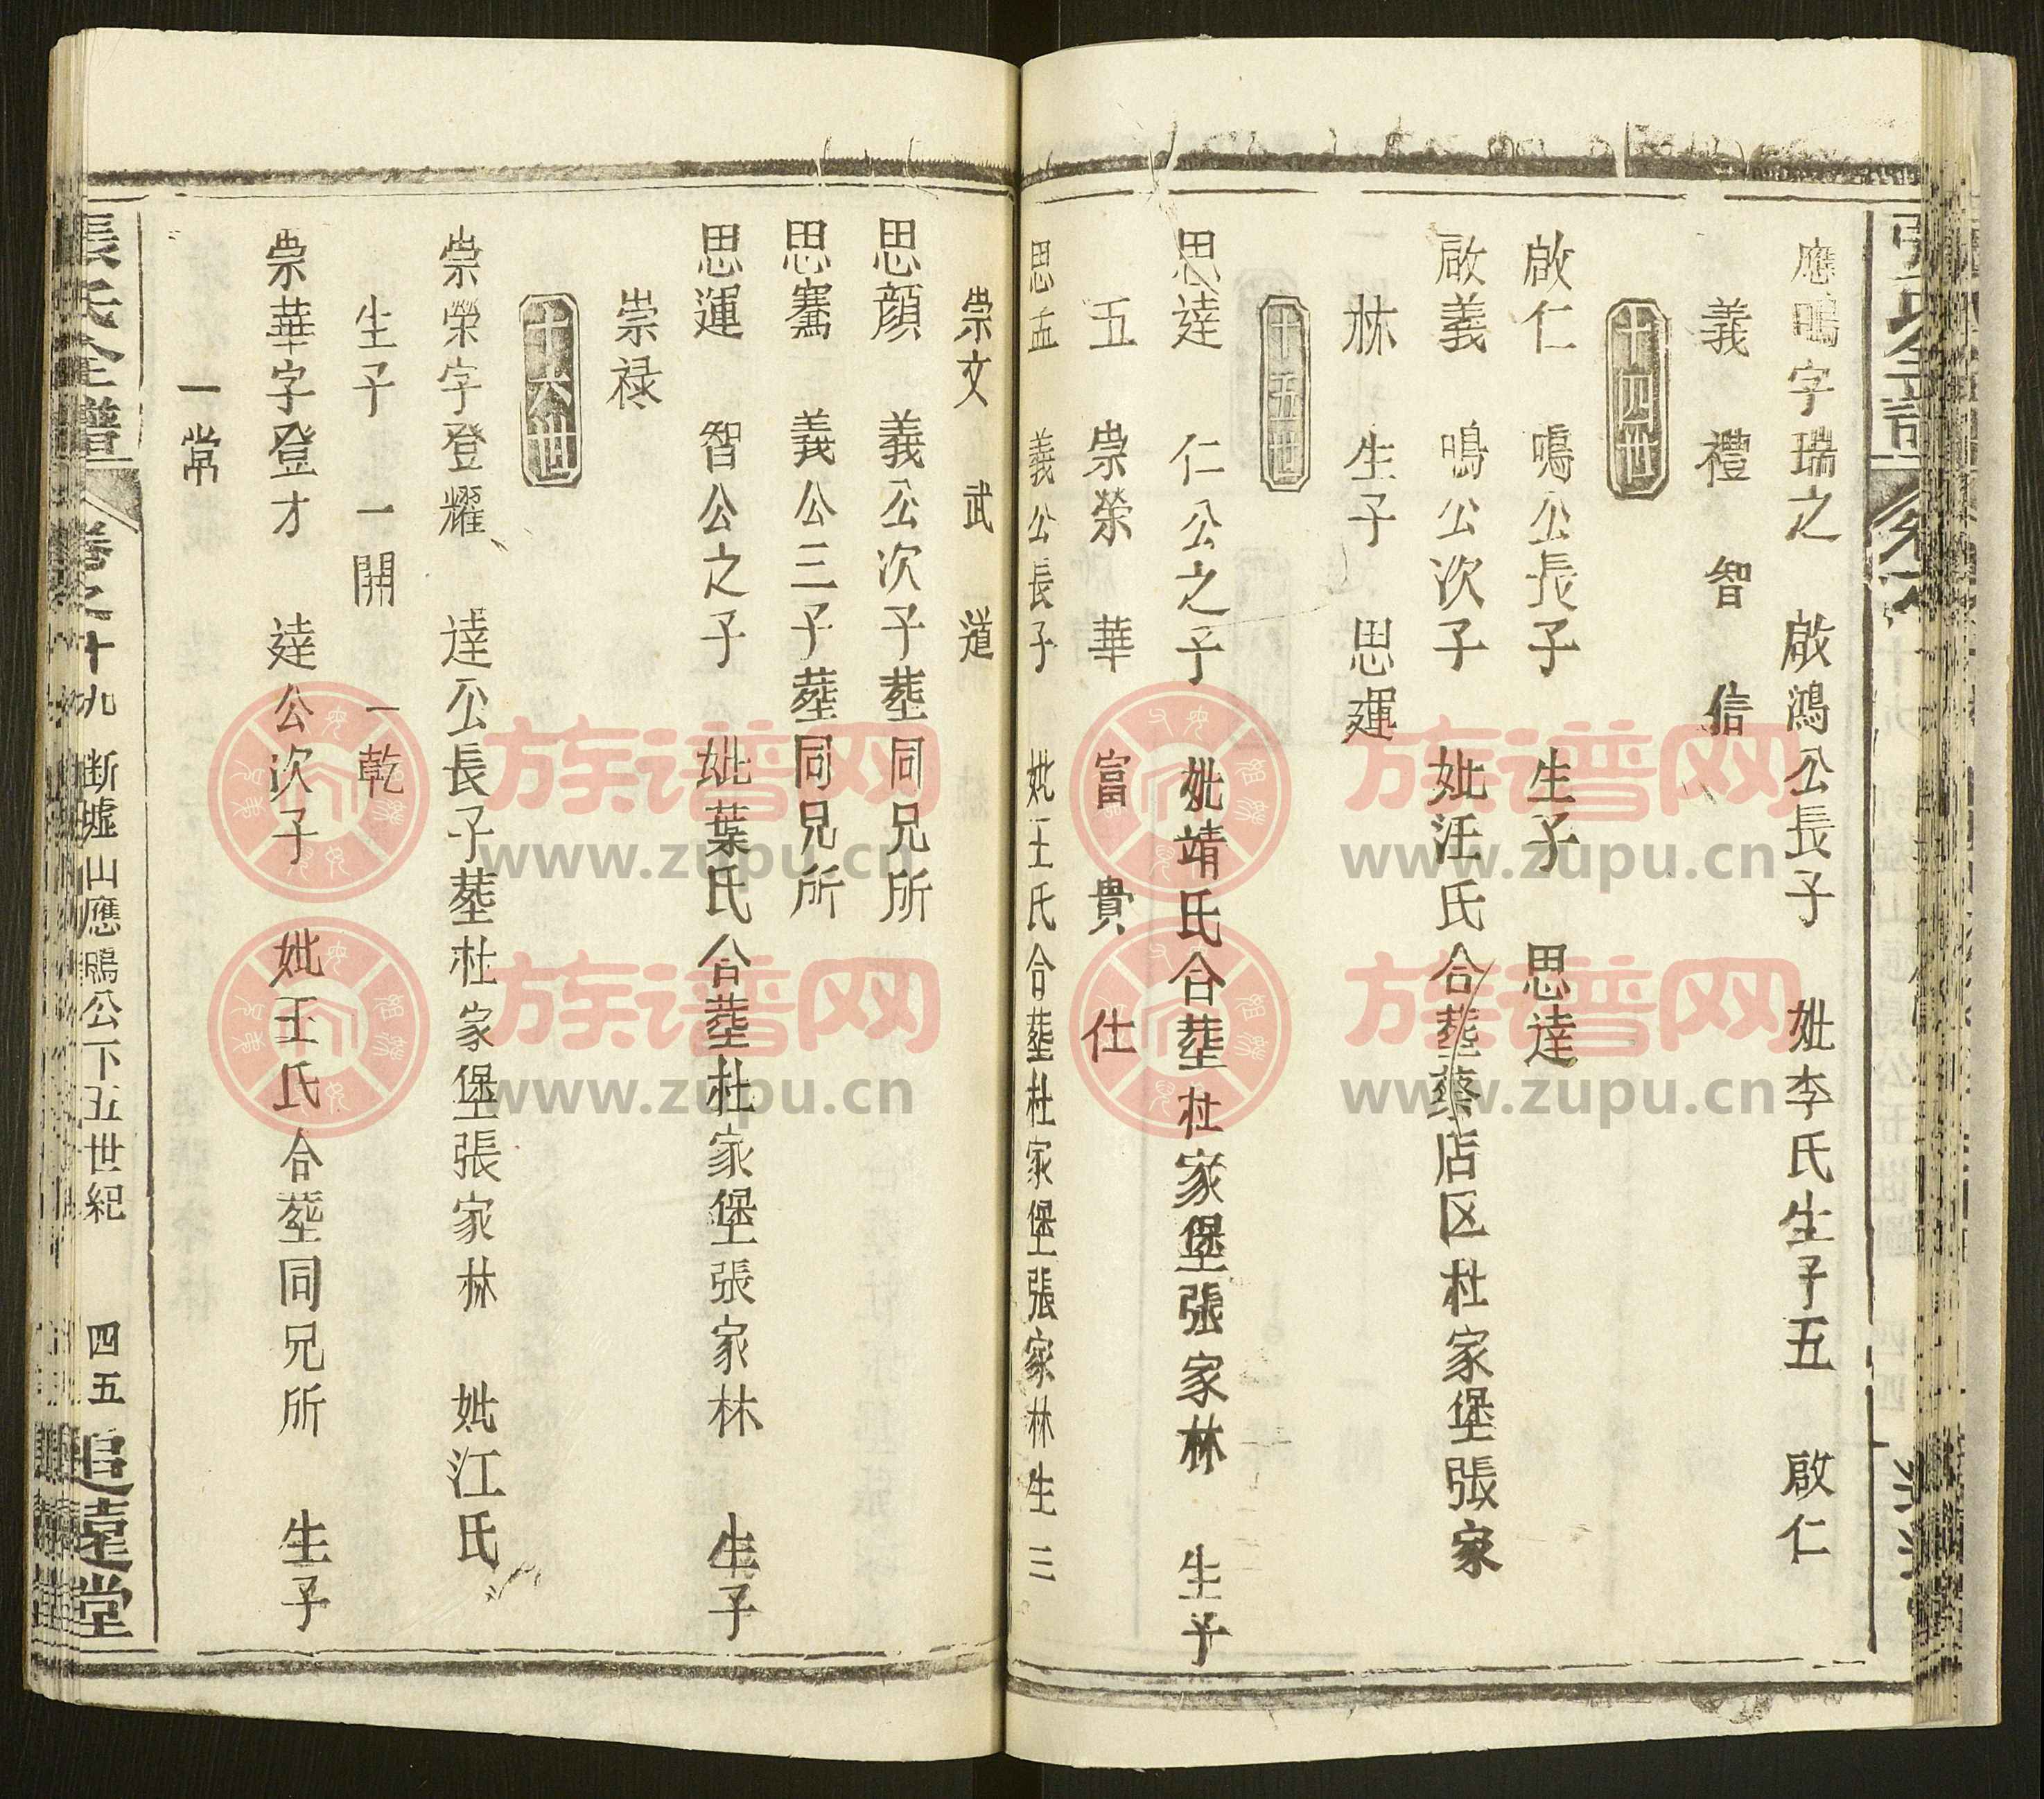 應鳴字瑞之 啟鴻公長子 妣李氏生子五 啟仁
義 禮 智 信
十四世
啟仁 鳴公長子 生子 思達
啟義 鳴公次子 妣汪氏合塟蔡店区杜家堡張家
林 生子 思運
十五世
思達 仁公之子 妣靖氏合塟杜家堡張家林 生子
五 崇榮 華 富 貴 仕
思孟 義公長子 妣王氏合塟杜家堡張家林生三
崇文 武 道
思顏 義公次子塟同兄所
思騫 義公三子塟同兄所
思運 智公之子 妣葉氏合塟杜家堡張家林 生子
崇禄
十六世
崇榮字登耀 達公長子塟杜家堡張家林 妣江氏
生子 一開 一乾
崇華字登才 達公次子 妣王氏合塟同兄所 生子
一常
張氏全譜 卷之十九 断墟山應鳴公下五世紀 四五 追遠堂
族谱网
www.zupu.cn
族谱网
www.zupu.cn
族谱网
www.zupu.cn
族谱网
www.zupu.cn